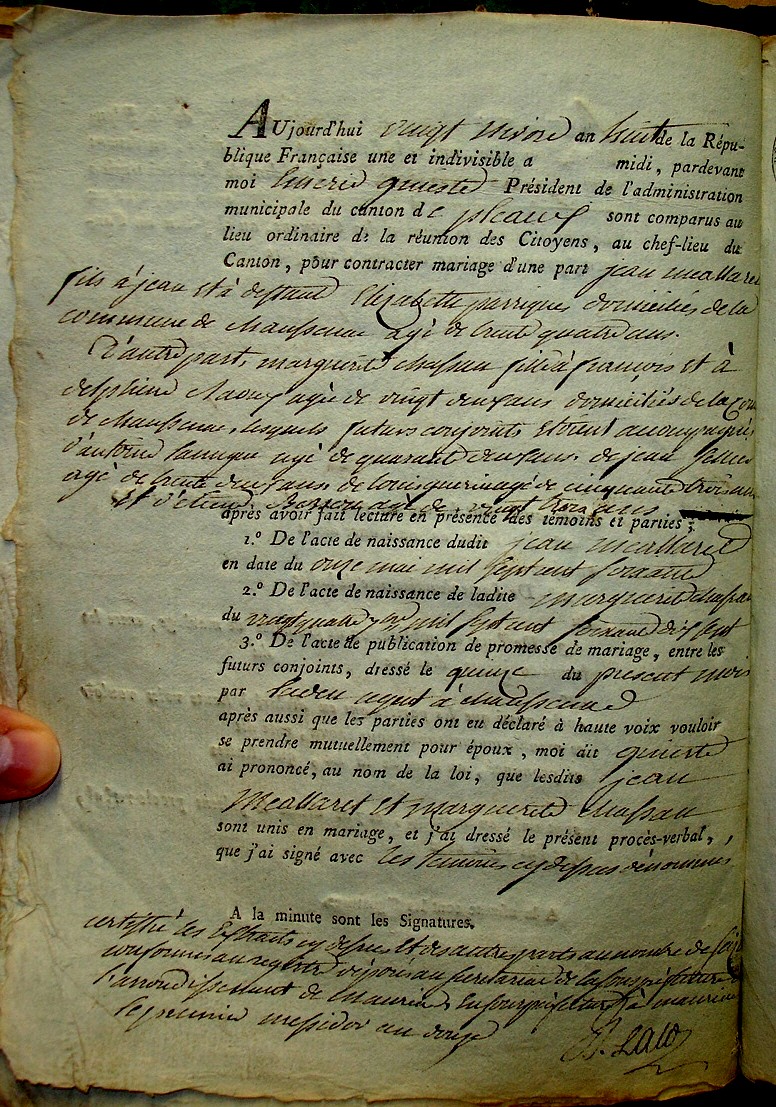 AUjourd'hui vingt nivose an huit de la Répu-
blique Française une et indivisible a midi, pardevant
moi Président de l'administration
municipale du canton de pleaux sont comparus au
lieu ordinaire de la réunion des Citoyens, au chef-lieu du
Canton, pour contracter mariage d'une part jean meallaret
fils à jean et à deffunte Elizabette parriques domiciliés de la
commune de Chaussenac agé de trente quatre ans.
D'autre part, marguerite chassan fille à françois et à
delphine agée de vingt deux ans domiciliés de la
de Chaussenac, lesquels futurs conjoints etoient accompagnés
d'antoine agé de quarante deux ans de jean
agé de trente deux ans de louis guerin agé de cinquante trois ans
et d'étienne agé de vingt trois ans
après avoir fait lecture en présence des témoins et parties ;
1.º De l'acte de naissance dudit jean meallaret
en date du onze mai mil sept cent soixante
2.º De l'acte de naissance de ladite marguerite chassan
du vingt quatre 7bre mil sept cent soixante dix sept
3.º De l'acte de publication de promesse de mariage, entre les
futurs conjoints, dressé le quinze du present mois
par agent à chaussenac
après aussi que les parties ont eu déclaré à haute voix vouloir
se prendre mutuellement pour époux, moi dit
ai prononcé, au nom de la loi, que lesdits jean
Meallaret et marguerite chassan
sont unis en mariage, et j'ai dressé le présent procès-verbal,
que j'ai signé avec les temoins cy dessus dénommés
A la minute sont les Signatures.
certifié les Extraits cy dessus et des autres parts au nombre de
conformes au registre déposé au secretariat de la sous prefecture
l'arrondissement de mauriac, En sous prefecture à mauriac
le premier messidor an douze